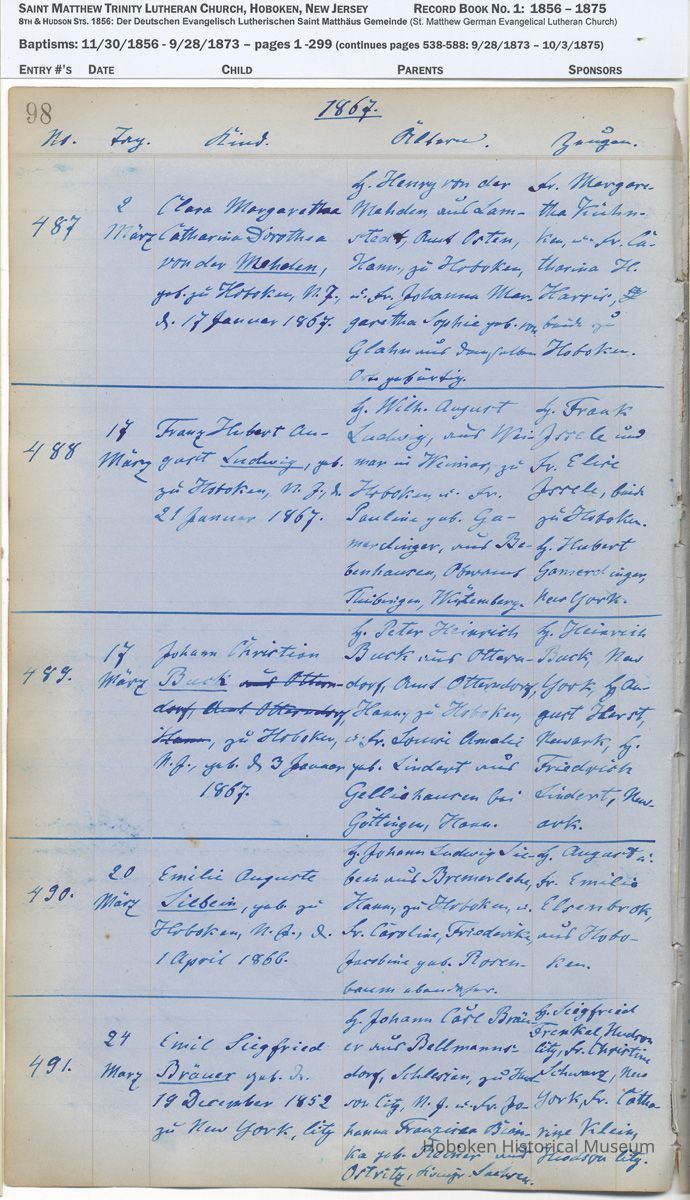 SAINT MATTHEW TRINITY LUTHERAN CHURCH, HOBOKEN, NEW JERSEY RECORD BOOK NO. 1: 1856 – 1875
8TH & HUDSON STS. 1856: Der Deutschen Evangelisch Lutherischen Saint Matthäus Gemeinde (St. Matthew German Evangelical Lutheran Church)
Baptisms: 11/30/1856 - 9/28/1873 – pages 1 -299 (continues pages 538-588: 9/28/1873 – 10/3/1875)
ENTRY #'S DATE CHILD PARENTS SPONSORS
98
1867.
No. Tag. Kind. Ältern. Zeugen.
487
2
März
Clara Margaretha
Catharina Dorothea
von der Mehden,
geb. zu Hoboken, N. J.,
d. 17 Januar 1867.
H. Henry von der
Mehden, aus Lam-
stedt, Amt Osten,
Hann., zu Hoboken,
u. Fr. Johanna Mar-
garetha Sophie geb. von
Glahn aus demselben
Ort gebürtig.
Fr. Margare-
tha Kühn-
ken, u. Fr. Ca-
tharina H.
Harris,
beide zu
Hoboken.
488
17
März
Franz Hubert Au-
gust Ludwig, geb.
zu Hoboken, N. J., d.
21 Januar 1867.
H. Wilh. August
Ludwig, aus Wei-
mar in Weimar, zu
Hoboken u. Fr.
Pauline geb. Ga-
merdinger, aus Be-
benhausen, Oberamt
Tübingen, Würtemberg.
H. Frank
Issele und
Fr. Elise
Issele, beide
zu Hoboken.
H. Hubert
Gamerdinger,
New York.
489.
17
März
Johann Christian
Buck aus Ottern-
dorf, Amt Otterndorf,
Hann., zu Hoboken,
N. J., geb. d. 3 Januar
1867.
H. Peter Heinrich
Buck aus Ottern-
dorf, Amt Otterndorf,
Hann., zu Hoboken,
u. Fr. Louise Amalie
geb. Lindert aus
Gelliehausen bei
Göttingen, Hann.
H. Heinrich
Buck, New
York, H. Au-
gust Horst,
Newark, H.
Friedrich
Lindert, New-
ark.
490.
20
März
Emilie Auguste
Siebein, geb. zu
Hoboken, N. J., d.
1 April 1866.
H. Johann Ludwig Sie-
bein aus Bremerlehe,
Hann., zu Hoboken, u.
Fr. Caroline, Friederike,
Jacobine geb. Rosen-
baum ebendaher.
H. August u.
Fr. Emilie
Elsenbrok,
aus Hobo-
ken.
491.
24
März
Emil Siegfried
Bräuer geb. d.
19 December 1852
zu New York, City
H. Johann Carl Bräu-
er aus Bellmanns-
dorf, Schlesien, zu Hud-
son City, N. J. u. Fr. Jo-
hanna Franziska Bian-
ka geb. und
Ostritz, Königr. Sachsen.
H. Siegfried
Frenkel, Hudson
City, Fr. Christine
Schwarz, New
York, Fr. Catha-
rine Klein,
Hudson City.
Hoboken Historical Museum